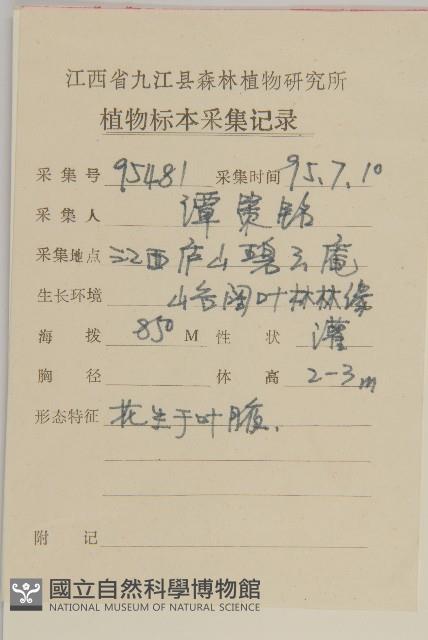 江西省九江县森林植物研究所
植物标本采集记录
采集号 95481 采集时间 95.7.10
采集人 谭策铭
采集地点 江西庐山碧云庵
生长环境 山谷阔叶林林缘
海拨 850 M 性状 灌
胸径 体高 2-3m
形态特征 花生于叶腋.
附记
國立自然科學博物館
NATIONAL MUSEUM OF NATURAL SCIENCE